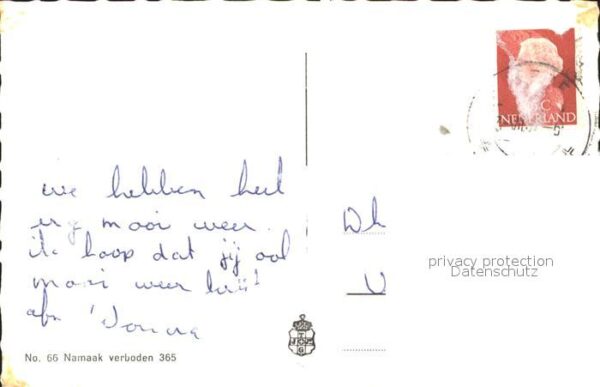 we hebben heel
erg mooi weer.
ik hoop dat jij ook
mooi weer
afz
Dh
V
privacy protection
Datenschutz
C
NEDERLAND
T
G
No. 66 Namaak verboden 365